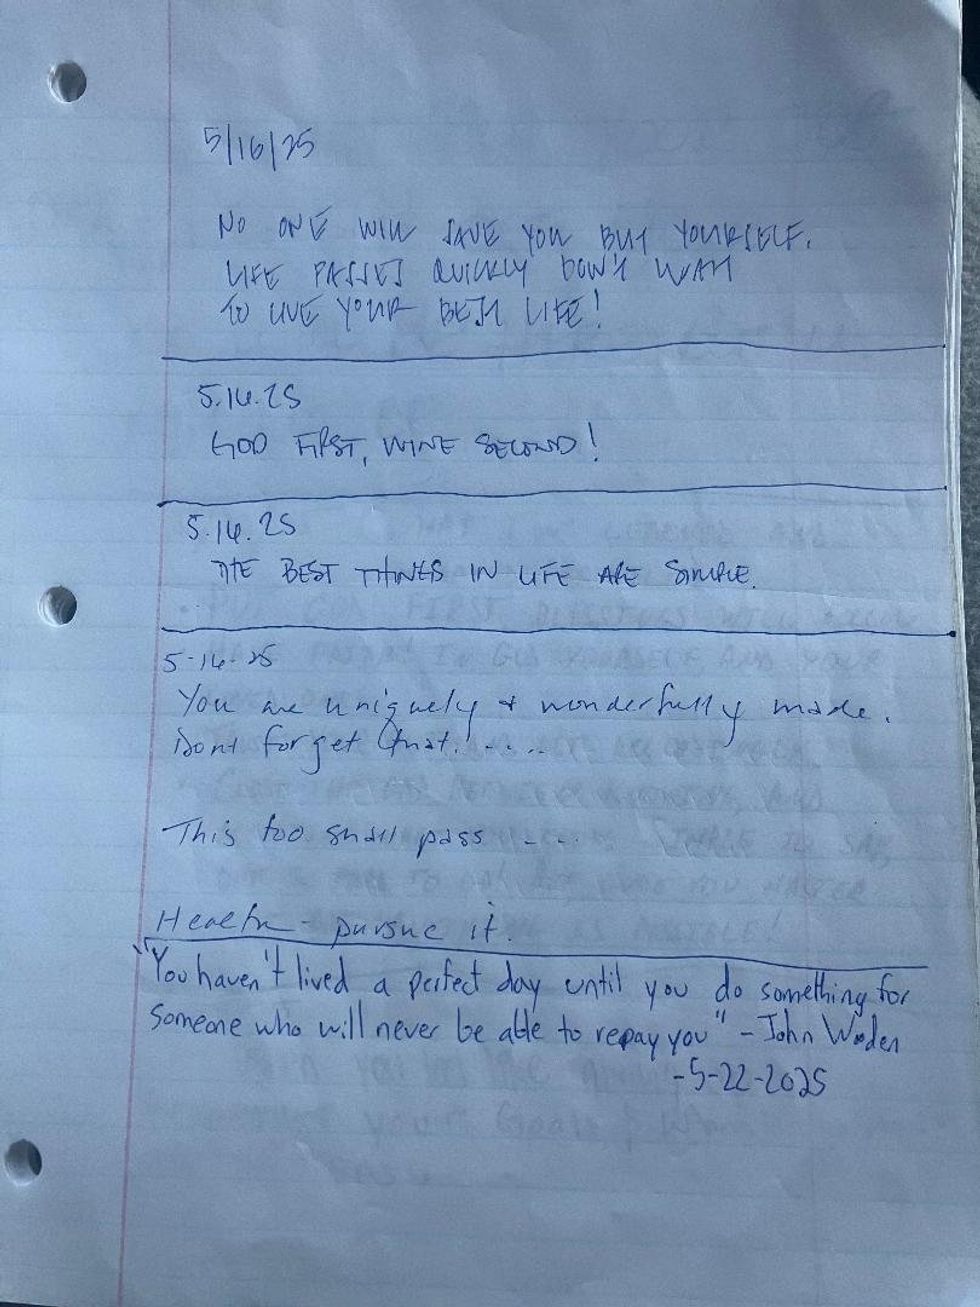 5/16/25
NO ONE WILL SAVE YOU BUT YOURSELF.
LIFE PASSES QUICKLY DON'T WAIT
TO LIVE YOUR BEST LIFE!
5.16.25
GOD FIRST, WINE SECOND!
5.16.25
THE BEST THINGS IN LIFE ARE SIMPLE.
5-16-25
You are uniquely & wonderfully made.
Dont forget that.....
This too shall pass ----
Health - pursue it.
"You haven't lived a perfect day until you do something for
someone who will never be able to repay you" - John Wooden
-5-22-2025